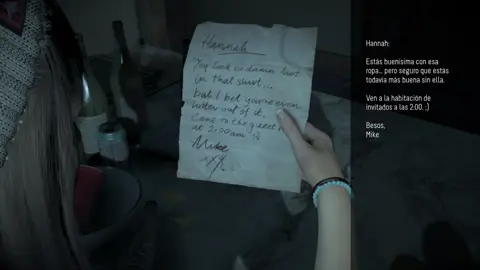 Hannah
You look so damn hot
in that shirt...
but I bet you're even
hotter out of it.
Come to the guest
at 2:00am ;)
Mike
xxx
Hannah:
Estás buenísima con esa
ropa... pero seguro que estás
todavía más buena sin ella.
Ven a la habitación de
invitados a las 2:00. ;)
Besos,
Mike